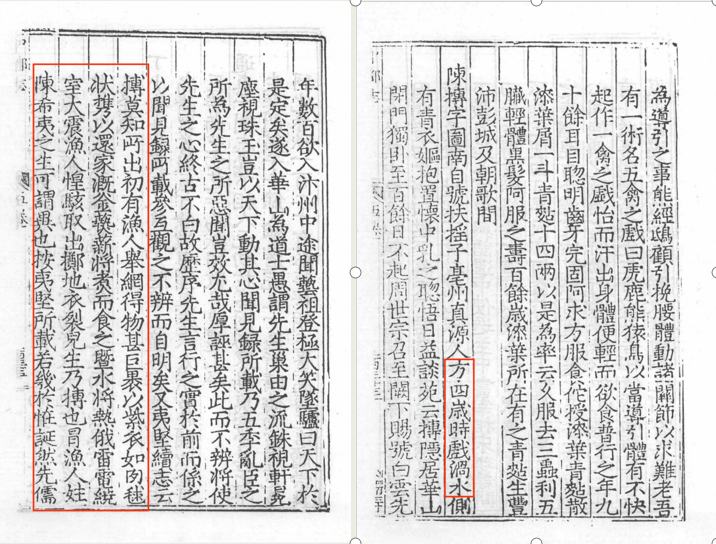 為導引之事能經鴟顧引挽腰體動諸關節以求難老吾
有一術名五禽之戲曰虎鹿熊猿鳥以當導引體有不快
起作一禽之戲怡而汗出身體便輕而欲食普行之年九
十餘耳目聰明齒牙完固阿求方服食佗授漆葉青䴴散
漆葉屑一斗青䴴十四兩以是為率云久服去三蟲利五
臟輕體黑髮阿服之壽百餘歲漆葉所在有之青䴴生豐
沛彭城及朝歌間
陳摶字圖南自號扶搖子亳州真源人方四歲時戲渦水側
有青衣嫗抱置懷中乳之聰悟日益談苑云摶隱居華山
閉門獨卧至百餘日不起周世宗召至闕下賜號白雲先
年數百欲入汴州中途聞藝祖登極大笑墜驢曰天下於
是定矣遂入華山為道士愚謂先生巢由之流銖視軒冕
塵視珠玉豈以天下動其心聞見録所載乃五季亂臣之
所為先生之所惡聞豈效尤哉厚誣甚矣此而不辨將使
先生之心終古不白故歷序先生言行之實於前而係之
以聞見録所載參互觀之不辨而自明矣又夷堅續志云
摶莫知所出初有漁人舉網得物甚巨裹以紫衣如肉毬
狀攜以還家溉釜爇薪將煮而食之暨水將熱俄雷電繞
室大震漁人惶駭取出擲地衣裂兒生乃摶也冒漁人姓
陳希夷之生可謂異也按夷堅所載若幾於怪誕然先儒